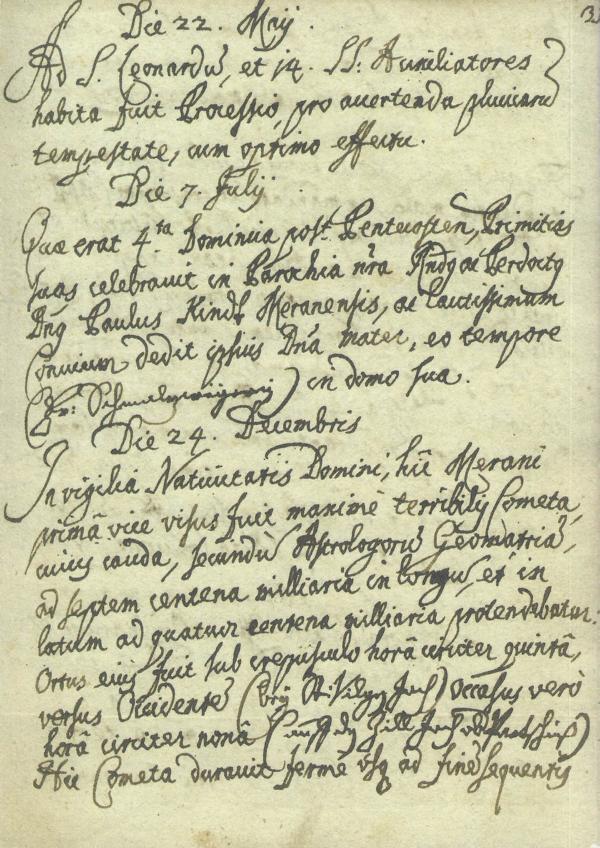 3
Die 22. Maij.
Ad S. Leonardũ, et 14. SS. Auxiliatores
habita fuit Processio, pro auertenda pluuiarũ
tempestate, cum optimo effectu.
Die 7. Julij
Quæ erat 4.ta Dominica post Pentecosten, Primitias
suas celebrauit in Parochia nr̃a Rndq ac Perdoctq
Dnq Paulus Kindl Meranensis, ac lautissimum
Conuiuium dedit ipsius Dña mater, eo tempore
(Fr: ) in domo sua.
Die 24. Decembris
In vigilia Natiuitatis Domini, hìc Merani
primâ vice visus fuit maximè terribilis Cometa,
cuius cauda, secundũ Astrologorũ Geometriã,
ad septem centena milliaria in longũ, et in
latum ad quatuor centena milliaria protendebatur.
Ortus eius fuit sub crepusculo horâ circiter quintâ,
versus Occidentẽ (beÿ Joch) Occasus verò
horâ circiter nonâ (auff dẽ Joch)
Hic Cometa durauit fermè vsq ad finẽ sequentis